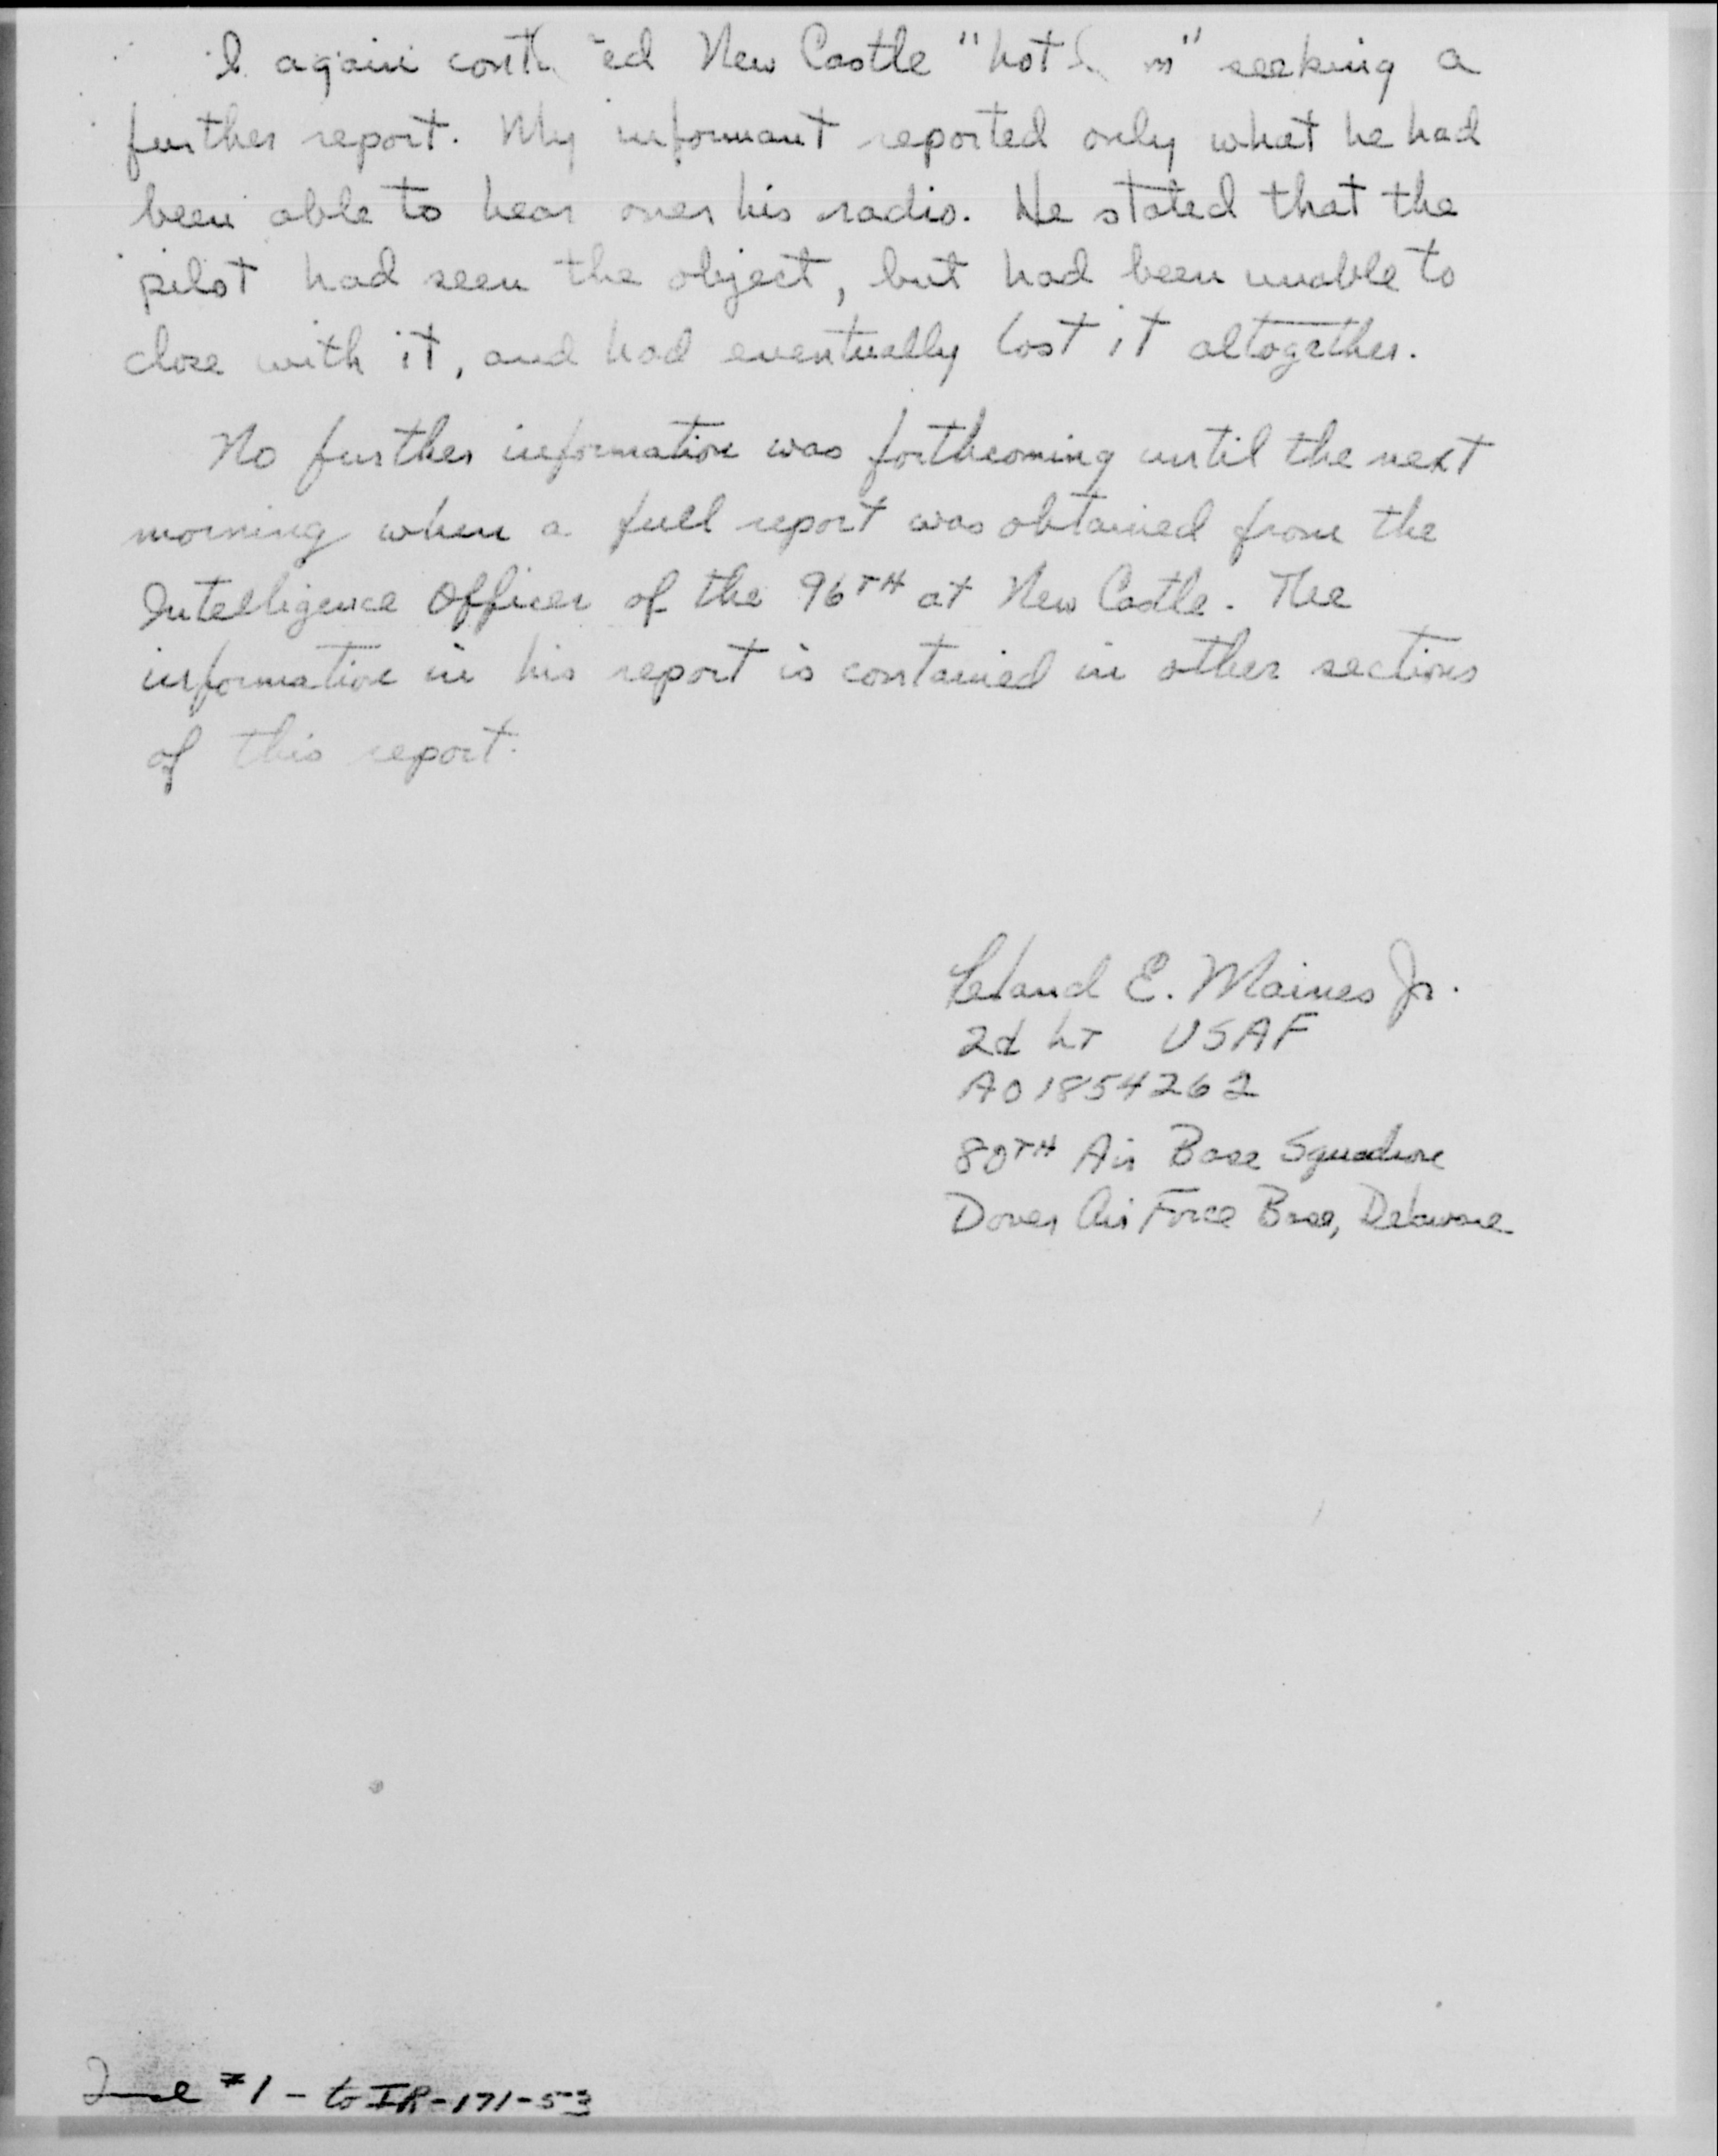 I again cont ed New Castle "hot m" seeking a
further report. My informant reported only what he had
been able to hear over his radio. He stated that the
pilot had seen the object, but had been unable to
close with it, and had eventually lost it altogether.
No further information was forthcoming until the next
morning when a full report was obtained from the
Intelligence Officer of the 96TH at New Castle. The
information in his report is contained in other sections
of this report.
Leland E. Maines Jr.
2d Lt USAF
AO 1854262
80TH Air Base Squadron
Dover Air Force Base, Delaware
Incl #1 - to IR-171-53